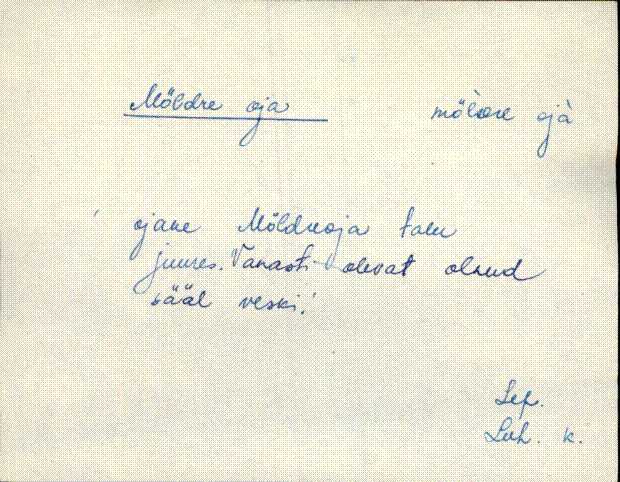 Mõldre oja mõl̀dre ojà
ojake Mõldreoja talu
juures. Vanasti olevat olnud
sääl veski.
Lep.
Luh. k.